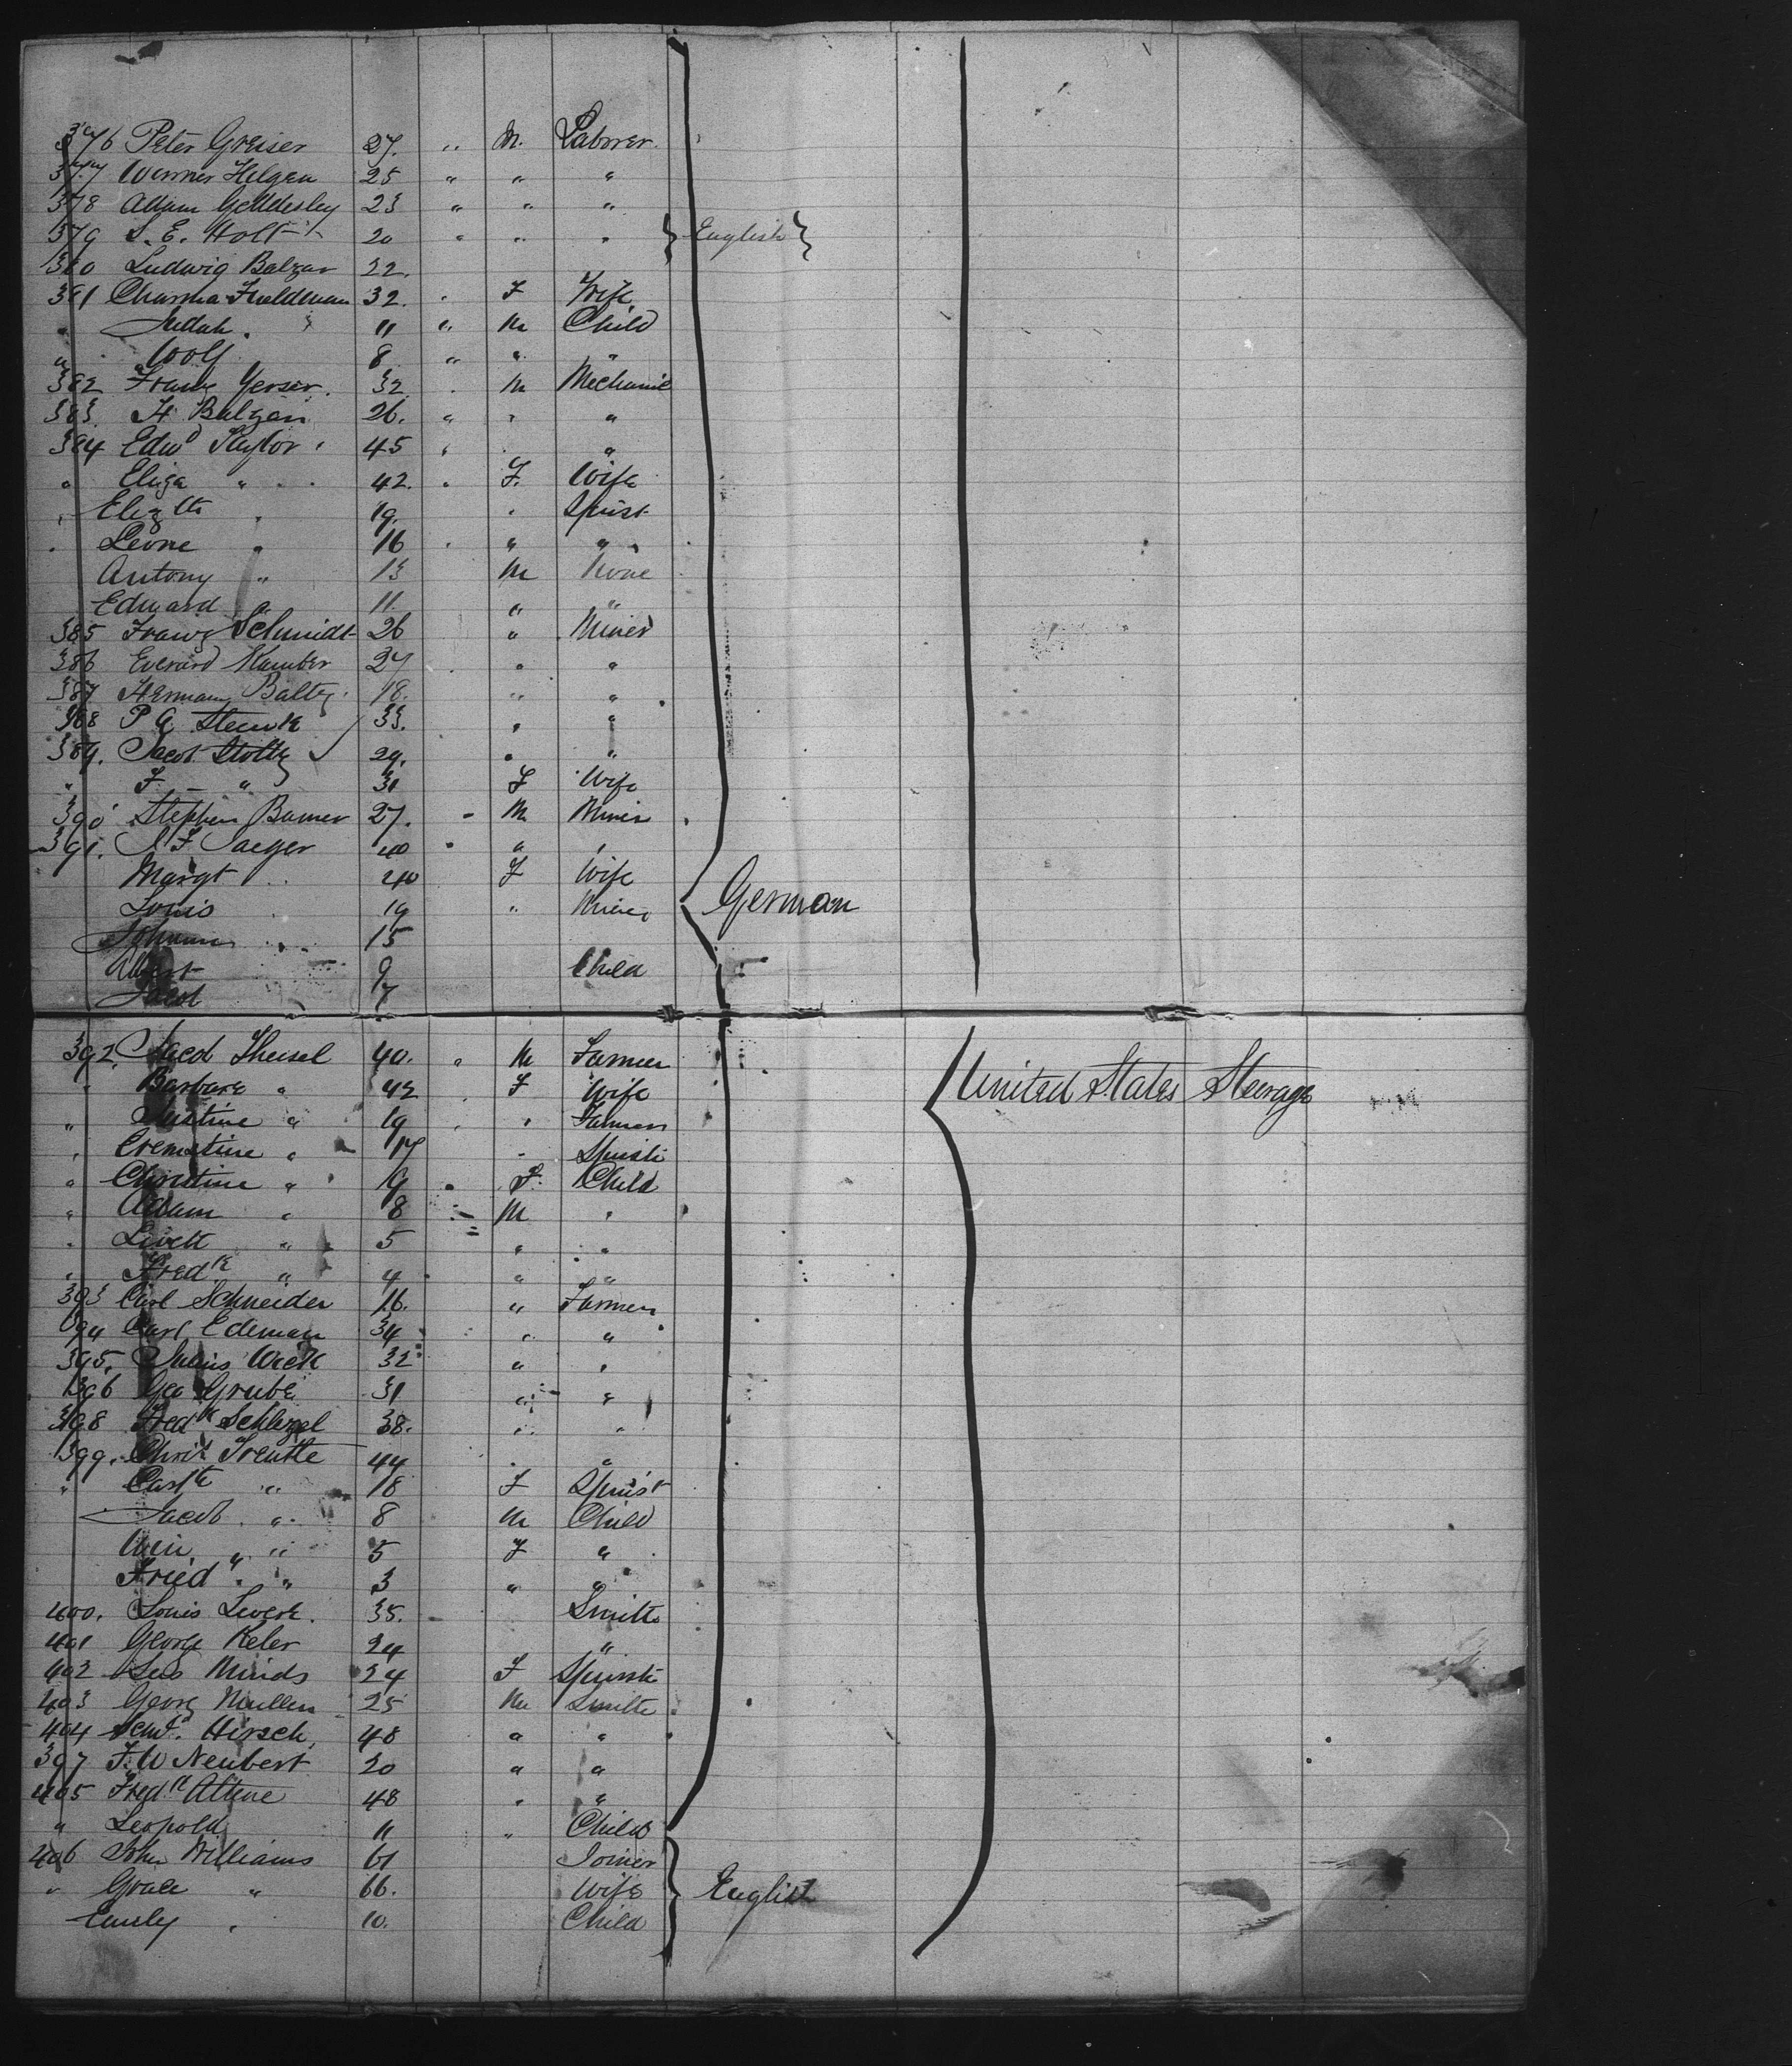 376 Peter Greiser 27. " M. Laborer
377 Werner Hilgen 25 " " "
378 Adam 23 " " "
379 S. E. Holt 20 " " " } English }
380 Ludwig Balzar 22.
381 32. " F Wife
" Judah " 11 " M Child
" Wolf 8 " " "
382 Franz Yerser. 32 " M Mechanic
383. H. Balzar 26. " " "
384 Edwd Taylor 45 " "
" Eliza " 42. " F. Wife
" Elizth " 19. " Spinst
" Leone " 16 " " "
Antony " 13 M None
Edward " 11. " "
385 Franz Schmidt 26 " Miner
386 Everard Kamber 27 " "
387 Hermann Baltz 18. " "
388 P G 33. " "
389. Jacob Stoltz 29. " "
" F. " 31 F Wife
390 Stephen Bamer 27. " M Miner
391. J F Jaeger 40 " " "
Margt 40 F Wife
Louis 19 " Miner German
Johann 15
Albert 9 Child
Jacob 7
392. Jacob Theisel 40. " M Farmer
" Barbara " 42 " F Wife United States Steerage
" " 19 " " Farmer
" " 17 " Spinst
" Christine " 9 " F. Child
" Adam " 8 " M "
" " 5 " "
" Fredk " 4 " "
393 Carl Schneider 16. " Farmer
394 Carl Edeman 34 " "
395. Julius Wick 32 " "
396 Geo Grube 31 " "
398 Fredk Schlegel 38. " "
399. Christ 44 " "
" " 18 F Spinst
Jacob " 8 M Child
" 5 F "
Fried " 3 " "
400. Louis 35. Smith
401 George Keler 24 "
402 Minds 24 F Spinst
403 Georg Mullen 25 M Smith
404 Hirsch 48 " "
397 F. W Neubert 20 " "
405 Fredk 48 " "
" Leopold 11 " Child
406 John Williams 61 Joiner
" Grace " 66. Wife English
Emily " 10. Child